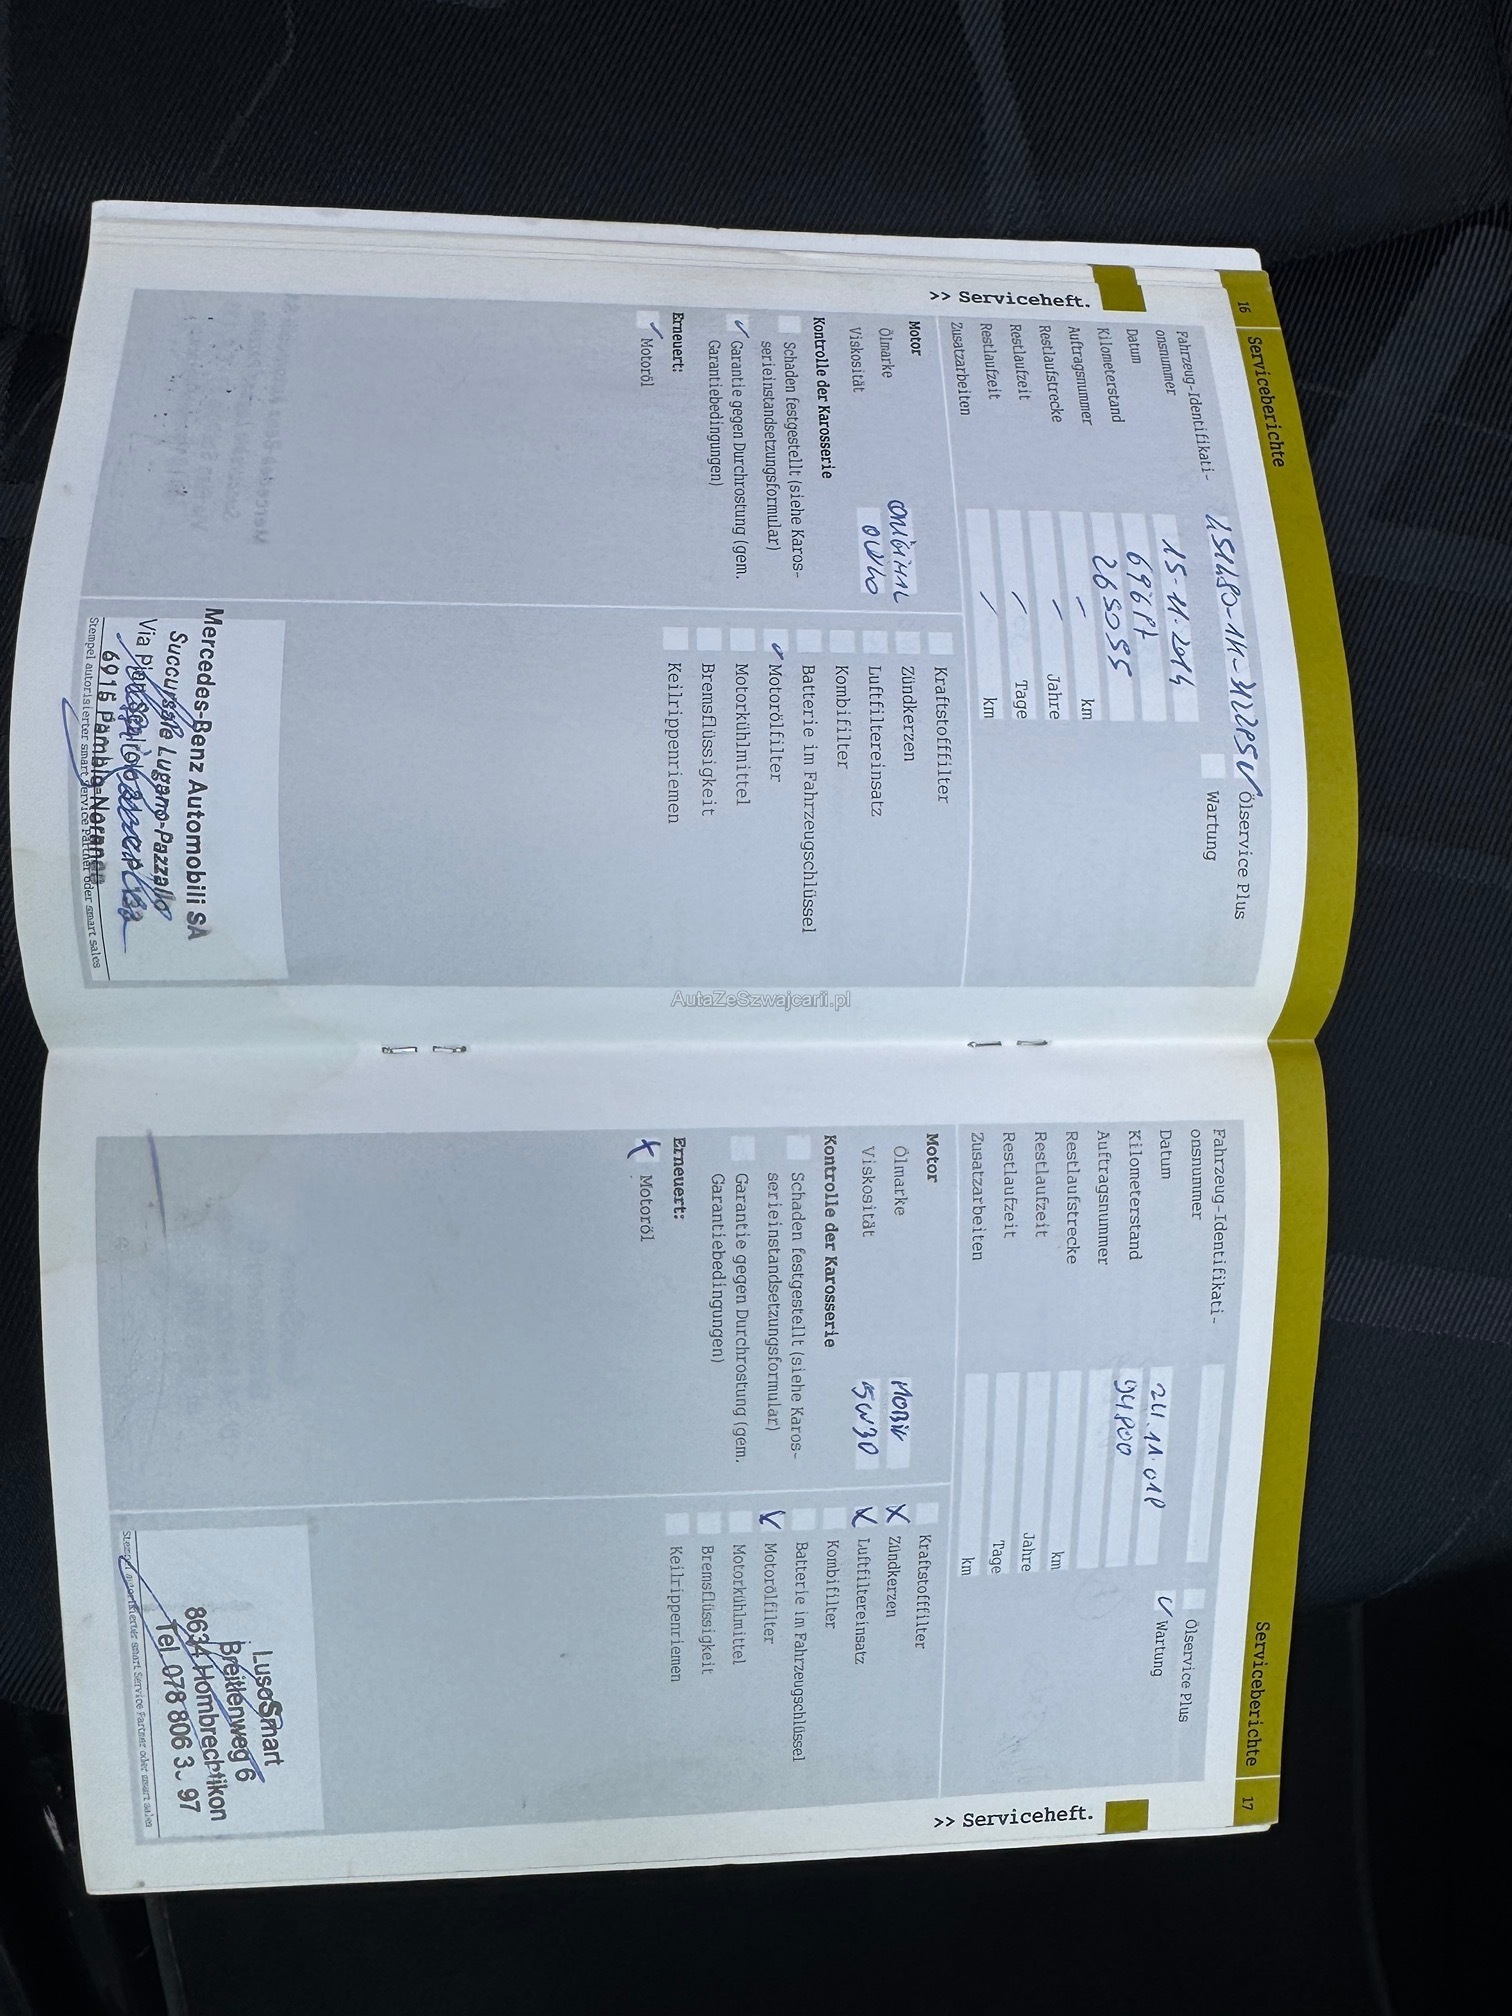 16 Serviceberichte
>> Serviceheft.
Fahrzeug-Identifikati-
onsnummer
Datum 15-11-2014
Kilometerstand
Auftragsnummer 265055
Restlaufstrecke / km
Restlaufzeit / Jahre
Restlaufzeit / Tage
Zusatzarbeiten / km
Ölservice Plus
Wartung
Motor
Ölmarke ORIGINAL
Viskosität 0W40
Kontrolle der Karosserie
Schaden festgestellt (siehe Karos-
serieinstandsetzungsformular)
Garantie gegen Durchrostung (gem.
Garantiebedingungen)
Erneuert:
Motoröl
Kraftstofffilter
Zündkerzen
Luftfiltereinsatz
Kombifilter
Batterie im Fahrzeugschlüssel
Motorölfilter
Motorkühlmittel
Bremsflüssigkeit
Keilrippenriemen
Mercedes-Benz Automobili SA
Succursale Lugano-Pazzallo
Via
6915 Pambio-Noranco
Stempel autorisierter smart Service Partner oder smart sales
AutaZeSzwajcarii.pl
Serviceberichte 17
>> Serviceheft.
Fahrzeug-Identifikati-
onsnummer
Datum 24.11.018
Kilometerstand 94800
Auftragsnummer
Restlaufstrecke km
Restlaufzeit Jahre
Restlaufzeit Tage
Zusatzarbeiten km
Ölservice Plus
Wartung
Motor
Ölmarke MOBIL
Viskosität 5W30
Kontrolle der Karosserie
Schaden festgestellt (siehe Karos-
serieinstandsetzungsformular)
Garantie gegen Durchrostung (gem.
Garantiebedingungen)
Erneuert:
X Motoröl
Kraftstofffilter
X Zündkerzen
X Luftfiltereinsatz
Kombifilter
Batterie im Fahrzeugschlüssel
X Motorölfilter
Motorkühlmittel
Bremsflüssigkeit
Keilrippenriemen
LusoSmart
Breitlenweg 6
8634 Hombrechtikon
Tel. 078 806 97
Stempel autorisierter smart Service Partner oder smart sales